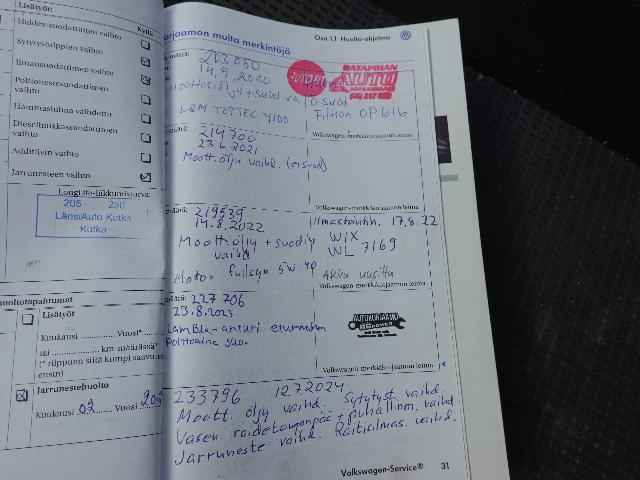 Lisätyöt:
Kyllä
Haldex-suodattimen vaihto
Sytytystulppien vaihto
Ilmansuodattimen vaihto
Polttonestesuodattimen vaihto
Hammashihna vaihdettu
Dieselhiukkassuodattimen vaihto
Additiivin vaihto
Jarrunesteen vaihto
LongLife-liikkumisturva:
205 230
LänsiAuto Kotka
Kotka
Lisätyöt
Kuukausi Vuosi*
tai km määrässä*
(* riippuen siitä kumpi saavutetaan ensin)
Jarrunestehuolto
Kuukausi 02 Vuosi
korjaamon muita merkintöjä
Osa 1.1 Huolto-ohjelma
203 050
14.9.2020
Moottoriöljy + suod va
LQM TOPTEC 4100
RATAPIHAN
AUTO
Ö-suod
Filtron OP616
Volkswagen-merkkikorjaamon leima
214 700
23.6.2021
Moott.öljy vaihd. (ei suod)
Volkswagen-merkkikorjaamon leima
219539
14.8.2022
Moott.öljy + suod.
vaihd
Motox fullsyn 5W40
Ilmastointih. 17.8.22
WIX
WL 7169
Akku uusittu
Volkswagen-merkkikorjaamon leima
227 706
23.8.2023
Lambda-anturi etummainen
Polttoaine suo.
AUTOKORJAAMO
Volkswagen-merkkikorjaamon leima
233796 12.7.2024
Moott. öljy vaihd. Sytytyst. vaihd.
Vasen raidetangonpää + puhallinm. vaihd
Jarruneste vaihd. Raitisilmas. vaihd.
Volkswagen-Service® 31